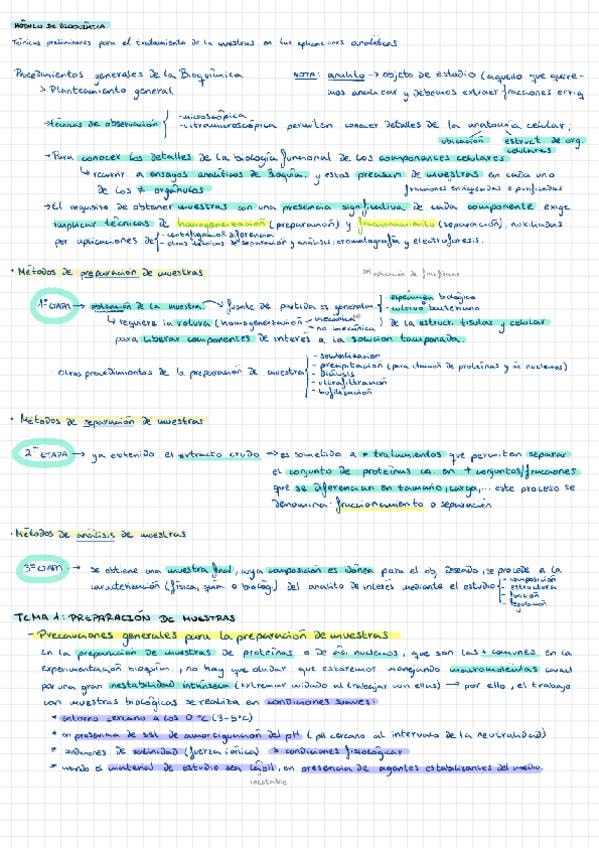 MÓDULO DE BIOQUÍMICA
Técnicas preliminares para el tratamiento de las muestras en las aplicaciones analíticas
Procedimientos generales de la Bioquímica
> Planteamiento general
NOTA: analito → objeto de estudio (aquello que quere-
mos analizar y debemos extraer fracciones
→ técnicas de observación
- microscópica
- ultramicroscópica permiten conocer detalles de la anatomía celular;
ubicación estruct de org.
celulares
→ Para conocer los detalles de la biología funcional de los componentes celulares
↳ recurrir a ensayos analíticos de Bioquím. y estos precisan de muestras en cada uno
de los ≠ orgánulos
fracciones enriquecidas o purificadas
→ El requisito de obtener muestras con una presencia significativa de cada componente exige
implicar técnicas de homogeneización (preparación) y fraccionamiento (separación), auxiliadas
por aplicaciones de
- centrifugación diferencial
- otras técnicas de separación y análisis: cromatografía y electroforesis.
· Métodos de preparación de muestras
1ª ETAPA → obtención de la muestra. → fuente de partida es generalm.
- espécimen biológico
- cultivo bacteriano
↳ requiere la rotura (homogeneización
- mecánica
- no mecánica
) de la estruct. tisular y celular
para liberar componentes de interés a la solución tamponada.
otros procedimientos de la preparación de muestra
- solubilización
- precipitación (para de proteínas y ác nucleicos)
- diálisis
- ultrafiltración
- liofilización
· Métodos de separación de muestras
2ª ETAPA → ya obtenido el extracto crudo → es sometido a ≠ tratamientos que permiten separar
el conjunto de proteínas en ≠ conjuntos/fracciones
que se diferencian en tamaño, carga,... este proceso se
denomina fraccionamiento o separación
· Métodos de análisis de muestras
3ª ETAPA → se obtiene una muestra final, cuya composición es idónea para el obj. deseado, se procede a la
caracterización (física, quím. o biológ.) del analito de interés mediante el estudio
- composición
- estructura
- función
- regulación
TEMA 1: PREPARACIÓN DE MUESTRAS
- Precauciones generales para la preparación de muestras
En la preparación de muestras de proteínas o de ác. nucleicos, que son las + comunes en la
experimentación bioquím., no hay que olvidar que estaremos manejando macromoléculas
por una gran inestabilidad intrínseca (extremar cuidado al trabajar con ellas) → por ello, el trabajo
con muestras biológicas se realiza en condiciones suaves:
* entorno cercano a los 0 ºC (3-5ºC)
* en presencia de sist. de amortiguación del pH (pH cercano al intervalo de la neutralidad)
* condiciones de salinidad (fuerza iónica) condiciones fisiológicas
* cuando el material de estudio sea lábil, en presencia de agentes estabilizantes del medio.
inestable